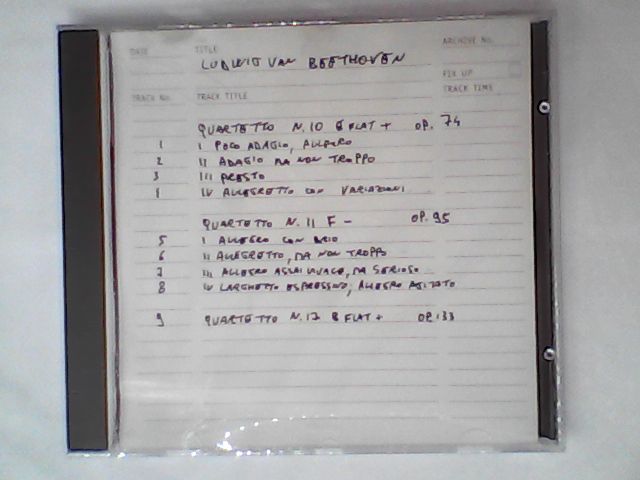 DATE TITLE ARCHIVE No.
LUDWIG VAN BEETHOVEN
FIX UP
TRACK No. TRACK TITLE TRACK TIME
QUARTETTO N. 10 E FLAT + OP. 74
1 I POCO ADAGIO, ALLEGRO
2 II ADAGIO MA NON TROPPO
3 III PRESTO
4 IV ALLEGRETTO CON VARIAZIONI
QUARTETTO N. 11 F - OP. 95
5 I ALLEGRO CON BRIO
6 II ALLEGRETTO, MA NON TROPPO
7 III ALLEGRO ASSAI VIVACE, MA SERIOSO
8 IV LARGHETTO ESPRESSIVO, ALLEGRO AGITATO
9 QUARTETTO N. 17 B FLAT + OP. 133